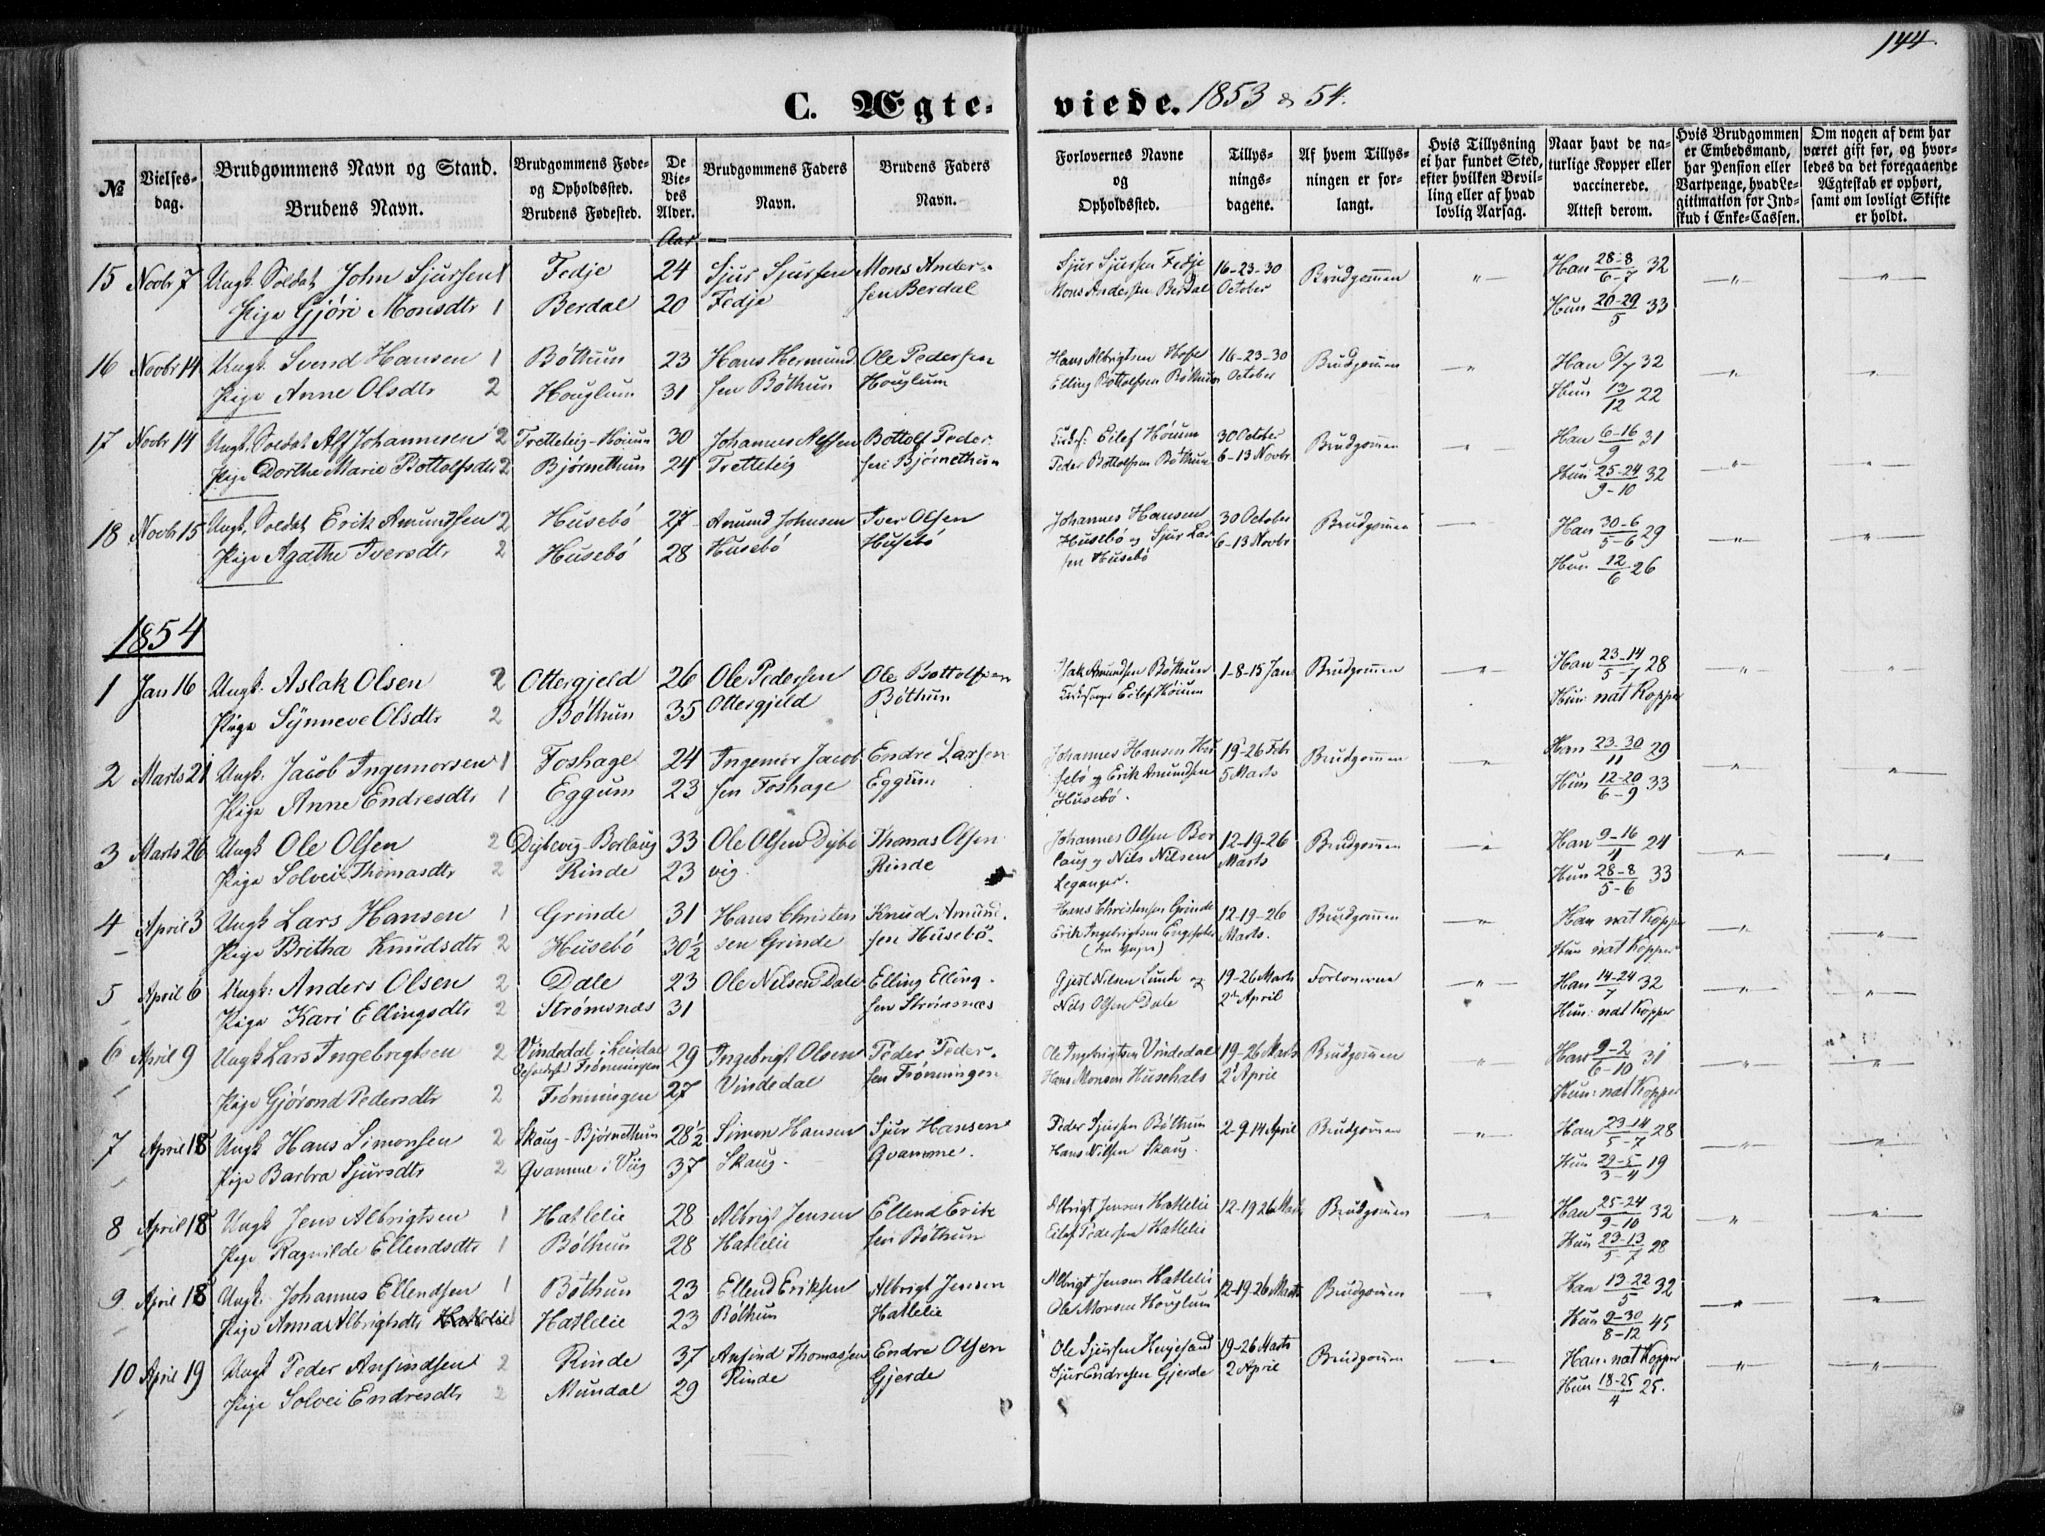 144.
C. Ægte-
viede. 1853 & 54.
№
Vielses-
dag.
Brudgommens Navn og Stand.
Brudens Navn.
Brudgommens Føde-
og Opholdssted.
Brudens Fødested.
De
Vie-
des
Alder.
Brudgommens Faders
Navn.
Brudens Faders
Navn.
Forlovernes Navne
og
Opholdssted.
Tillys-
nings-
dagene.
Af hvem Tillys-
ningen er for-
langt.
Hvis Tillysning
ei har fundet Sted,
efter hvilken Bevil-
ling eller af hvad
lovlig Aarsag.
Naar havt de na-
turlige Kopper eller
vaccinerede.
Attest derom.
Hvis Brudgommen
er Embedsmand,
har Pension eller
Vartpenge, hvad Le-
gitimation for Ind-
skud i Enke-Cassen.
Om nogen af dem har
været gift før, og hvor-
ledes da det foregaaende
Ægteskab er ophørt,
samt om lovligt Skifte
er holdt.
Aar
15 Novbr 7 Ungk. Soldat John Sjursen 1 Fedje 24 Sjur Sjursen Mons Ander- Sjur Sjursen Fedje 16-23-30 Brudgommen " Han 28-8/6-7 32 " "
Pige Gjøri Monsdtr 1 Berdal 20 Fedje sen Berdal Mons Andersen Berdal October Hun 20-29/5 33
16 Novbr 14 Ungk. Svend Hansen 1 Bøthun 23 Hans Hermund Ole Pedersen Hans Albrigtsen Hofse 16-23-30 Brudgommen " Han 6/7 32 " "
Pige Anne Olsdtr 2 Houglum 31 sen Bøthun Houglum Elling Bottolfsen Bøthun October Hun 13/12 22
17 Novbr 14 Ungk. Soldat Alf Johannesen 2 Tretteteig-Høium 30 Johannes Alfsen Bottolf Peder- Eilef Høium 30 October Brudgommen " Han 6-16/9 31
Pige Dorthe Marie Bottolfsdtr 2 Bjørnethun 24 Tretteteig sen Bjørnethun Peder Bottolfsen Bøthun 6-13 Novbr Hun 25-24/9-10 32 " "
18 Novbr 15 Ungk. Soldat Erik Amundsen 2 Husebø 27 Amund Johnsen Iver Olsen Johannes Hansen 30 October Brudgommen " Han 30-6/5-6 29 " "
Pige Agathe Iversdtr 2 Husebø 28 Husebø Husebø Husebø og Sjur Lar 6-13 Novbr
sen Husebø Hun 12/6 26
1854
1 Jan 16 Ungk. Aslak Olsen 2 Ottergjeld 26 Ole Pedersen Ole Bottolfsen Isak Amundsen Bøthun 1-8-15 Jan Brudgommen " Han 23-14/5-7 28 " "
Pige Synneve Olsdtr 2 Bøthun 35 Ottergjeld Bøthun Kirkesanger Eilef Høium Hun: nat Kopper
2 Marts 21 Ungk. Jacob Ingemorsen 1 Foshage 24 Ingemor Jacob Endre Larsen Johannes Hansen Hu 19-26 Febr Brudgommen " Han 23-30/11 29 " "
Pige Anne Endresdtr 1 Eggum 23 sen Foshage Eggum sebø og Erik Amundsen 5 Marts Hun 12-20/6-9 33
Husebø.
3 Marts 26 Ungk Ole Olsen 2 Dybevig-Borlaug 33 Ole Olsen Dybe Thomas Olsen Johannes Olsen Bor 12-19-26 Brudgommen " Han 9-16/4 24 " "
Pige Solvei Thomasdtr 2 Rinde 23 vig. Rinde laug og Nils Nilsen Marts Hun 28-8/5-6 33
Leganger.
4 April 3 Ungk Lars Hansen 1 Grinde 31 Hans Christen Knud Amund- Hans Christensen Grinde 12-19-26 Brudgommen " Han nat Kopper " "
Pige Britha Knudsdtr 2 Husebø 30½ sen Grinde sen Husebø. Erik Ingebrigtsen Marts. Hun nat Kopper
(den Yngre)
5 April 6 Ungk: Anders Olsen 2 Dale 23 Ole Nilsen Dale Elling Elling- Gjert Nilsen Lunde og 19-26 Marts Forloverne " Han 14-24/7 32 " "
Pige Kari Ellingsdtr 2 Strømsnæs 31 sen Strømsnæs Nils Olsen Dale 2 April Hun: nat Kopper
6 April 9 Ungk Lars Ingebrigtsen 2 Vindedal i Leirdal 29 Ingebrigt Olsen Peder Peder- Ole Ingebrigtsen Vindedal 19-26 Marts Brudgommen " Han 9-2/6-10 31 " "
Frønningen
Pige Gjørond Pedersdtr 2 Frønningen 27 Vindedal sen Frønningen Hans Monsen Husehals 2 April Hun: nat Kopper
7 April 18 Ungk Hans Simonsen 2 Skaug-Bjørnethun 28½ Simon Hansen Sjur Hansen Peder Sjursen Bøthun 2-9-14 April Brudgommen " Han 23-14/5-7 28 " "
Pige Barbra Sjursdtr 2 Qvamme i Viig 37 Skaug. Qvamme. Hans Nilsen Skaug. Hun 29-5/3-4 19
8 April 18 Ungk Jens Albrigtsen 1 Hatlelie 28 Albrigt Jensen Ellend Erik Albrigt Jensen Hatlelie 12-19 26 Marts Brudgommen " Han 25-24/9-10 32 " "
Pige Ragnilde Ellendsdtr 1 Bøthun 28 Hatlelie sen Bøthun Eilef Pedersen Hatlelie Hun 23-13/5-7 28
9 April 18 Ungk. Johannes Ellendsen 1 Bøthun 23 Ellend Eriksen Albrigt Jensen Albrigt Jensen Hatlelie 12-19-26 Marts Brudgommen " Han 13-22/5 32 " "
Pige Anna Albrigtsdtr Hatlelie 1 Hatlelie 23 Bøthun Hatlelie Ole Monsen Houglum Hun 9-30/8-12 45
10 April 19 Ungk Peder Anfindsen 2 Rinde 37 Anfind Thomassen Endre Olsen Ole Sjursen Hugesand 19-26 Marts Brudgommen " Han: nat Kopper " "
Pige Solvei Endresdtr 2 Mundal 29 Rinde Gjerde Sjur Endresen Gjerde 2 April Hun 18-25/4 25.